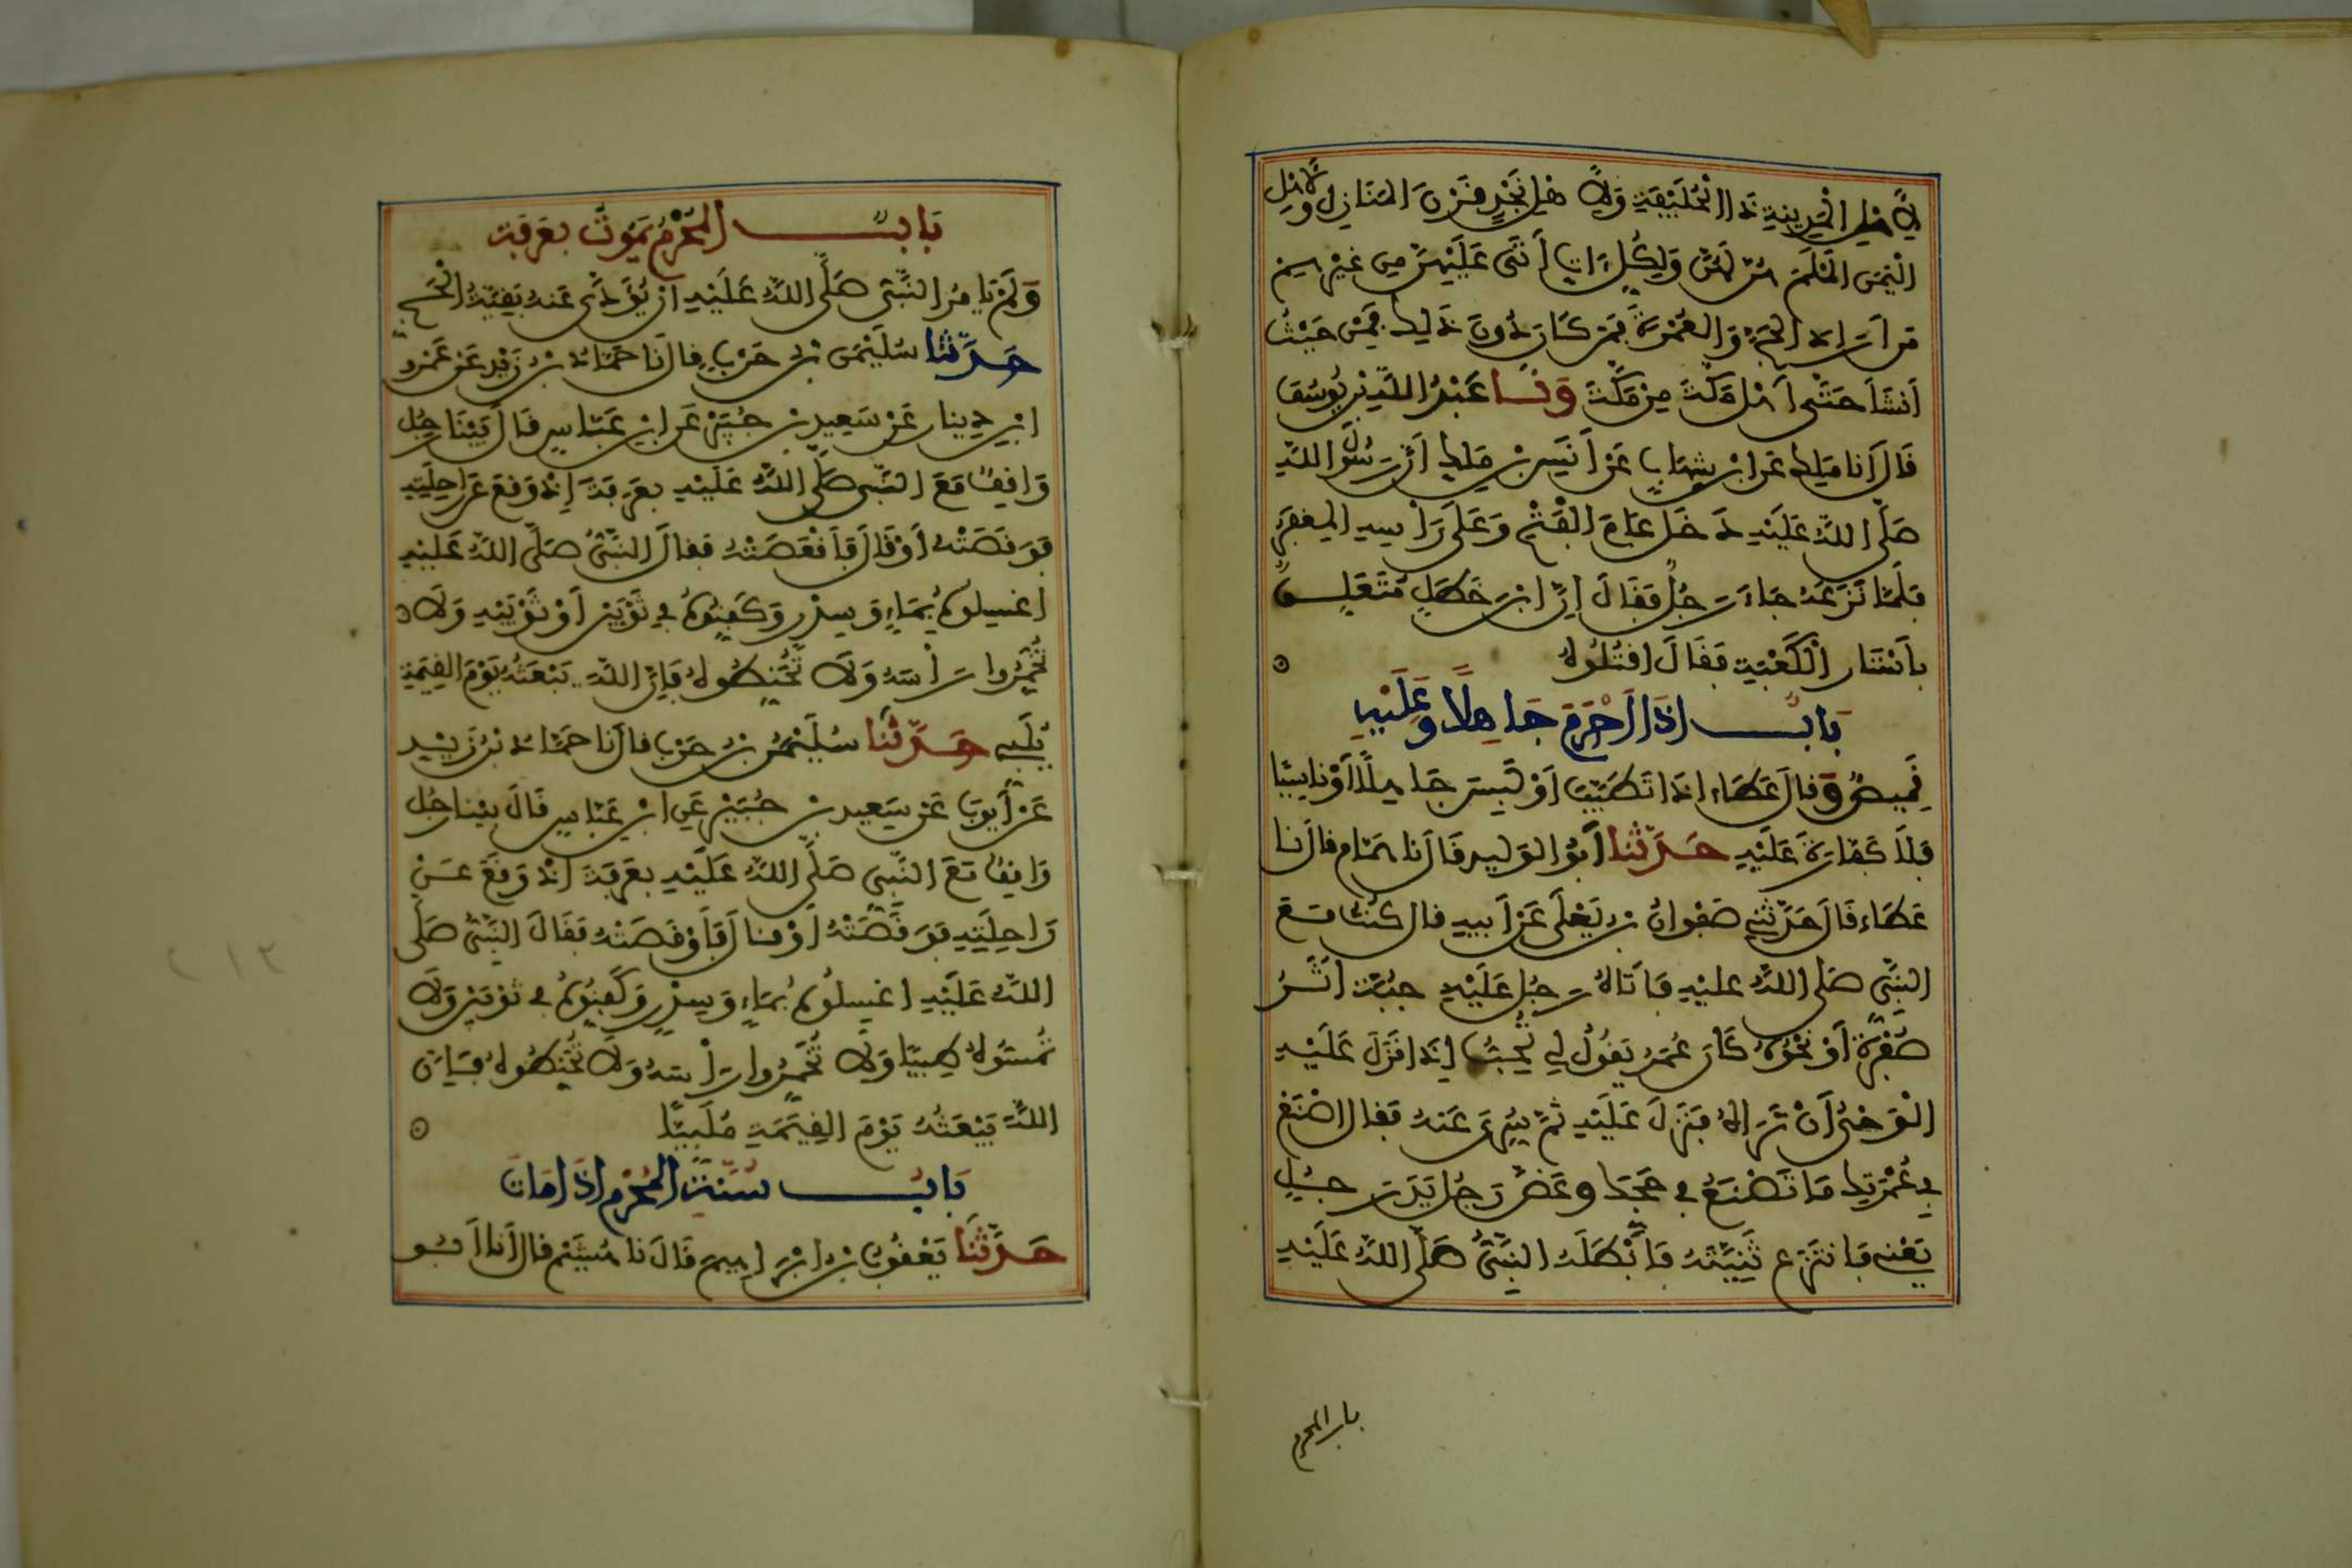 لِأَهْلِ الْمَدِينَةِ ذَا الْحُلَيْفَةِ وَلِأَهْلِ نَجْدٍ قَرْنَ الْمَنَازِلِ وَلِأَهْلِ
الْيَمَنِ أَلَمْلَمَ هُنَّ لَهُنَّ وَلِكُلِّ ءَاتٍ أَتَى عَلَيْهِنَّ مِنْ غَيْرِهِمْ
مَنْ أَرَادَ الْحَجَّ وَالْعُمْرَةَ فَمَنْ كَانَ دُونَ ذَلِكَ فَمِنْ حَيْثُ
أَنْشَأَ حَتَّى أَهْلُ مَكَّةَ مِنْ مَكَّةَ وَنَا عَبْدُ اللَّهِ بْنُ يُوسُفَ
قَالَ أَنَا مَلِك عَنِ ابْنِ شِهَابٍ عَنْ أَنَسِ بْنِ مَلِكٍ أَنَّ رَسُولَ اللَّهِ
صَلَّى اللَّهُ عَلَيْهِ دَخَلَ عَامَ الْفَتْحِ وَعَلَى رَأْسِهِ الْمِغْفَرُ
فَلَمَّا نَزَعَهُ جَاءَ رَجُلٌ فَقَالَ إِنَّ ابْنَ خَطَلٍ مُتَعَلِّقٌ
بِأَسْتَارِ الْكَعْبَةِ فَقَالَ اقْتُلُوهُ
بَابٌ إِذَا أَحْرَمَ جَاهِلًا وَعَلَيْهِ
قَمِيصٌ وَقَالَ عَطَاء إِذَا تَطَيَّبَ أَوْ لَبِسَ جَاهِلًا أَوْ نَاسِيًا
فَلَا كَفَّارَةَ عَلَيْهِ حَدَّثَنَا أَبُو الْوَلِيدِ قَالَ نَا هَمَّام قَالَ نَا
عَطَاء قَالَ حَدَّثَنِي صَفْوَانُ بْنُ يَعْلَى عَنْ أَبِيهِ قَالَ كُنْتُ مَعَ
النَّبِيِّ صَلَّى اللَّهُ عَلَيْهِ فَأَتَاهُ رَجُل عَلَيْهِ جُبَّة أَثَرُ
صُفْرَةٍ أَوْ نَحْوُهُ كَانَ عُمَرُ يَقُولُ لِي تُحِبُّ إِذَا نَزَلَ عَلَيْهِ
الْوَحْيُ أَنْ تَرَاهُ فَنَزَلَ عَلَيْهِ ثُمَّ سُرِّيَ عَنْهُ فَقَالَ اصْنَعْ
فِي عُمْرَتِكَ مَا تَصْنَعُ فِي حَجِّكَ وَعَضَّ رَجُل يَدَ رَجُلٍ
يَعْنِي فَانْتَزَعَ ثَنِيَّتَهُ فَأَبْطَلَهُ النَّبِيُّ صَلَّى اللَّهُ عَلَيْهِ
باب المحرم
بَابٌ الْمُحْرِمُ يَمُوتُ بِعَرَفَةَ
وَلَمْ يَأْمُرِ النَّبِيُّ صَلَّى اللَّهُ عَلَيْهِ أَنْ يُؤَدَّى عَنْهُ بَقِيَّةُ الْحَجِّ
حَدَّثَنَا سُلَيْمَنُ بْنُ حَرْبٍ قَالَ نَا حَمَّادُ بْنُ زَيْدٍ عَنْ عَمْرِو
ابْنِ دِينَارٍ عَنْ سَعِيدِ بْنِ جُبَيْرٍ عَنِ ابْنِ عَبَّاسٍ قَالَ بَيْنَا رَجُل
وَاقِفٌ مَعَ النَّبِيِّ صَلَّى اللَّهُ عَلَيْهِ بِعَرَفَةَ إِذْ وَقَعَ عَنْ رَاحِلَتِهِ
فَوَقَصَتْهُ أَوْ قَالَ فَأَقْعَصَتْهُ فَقَالَ النَّبِيُّ صَلَّى اللَّهُ عَلَيْهِ
اغْسِلُوهُ بِمَاءٍ وَسِدْرٍ وَكَفِّنُوهُ فِي ثَوْبَيْنِ أَوْ ثَوْبَيْهِ وَلَا
تُخَمِّرُوا رَأْسَهُ وَلَا تُحَنِّطُوهُ فَإِنَّ اللَّهَ يَبْعَثُهُ يَوْمَ الْقِيَمَةِ
يُلَبِّي حَدَّثَنَا سُلَيْمَنُ بْنُ حَرْبٍ قَالَ نَا حَمَّادُ بْنُ زَيْدٍ
عَنْ أَيُّوبَ عَنْ سَعِيدِ بْنِ جُبَيْرٍ عَنِ ابْنِ عَبَّاسٍ قَالَ بَيْنَا رَجُل
وَاقِفٌ مَعَ النَّبِيِّ صَلَّى اللَّهُ عَلَيْهِ بِعَرَفَةَ إِذْ وَقَعَ عَنْ
رَاحِلَتِهِ فَوَقَصَتْهُ أَوْ قَالَ فَأَوْقَصَتْهُ فَقَالَ النَّبِيُّ صَلَّى
اللَّهُ عَلَيْهِ اغْسِلُوهُ بِمَاءٍ وَسِدْرٍ وَكَفِّنُوهُ فِي ثَوْبَيْنِ وَلَا
تُمِسُّوهُ طِيبًا وَلَا تُخَمِّرُوا رَأْسَهُ وَلَا تُحَنِّطُوهُ فَإِنَّ
اللَّهَ يَبْعَثُهُ يَوْمَ الْقِيَمَةِ مُلَبِّيًا
بَابُ سُنَّةِ الْمُحْرِمِ إِذَا مَاتَ
حَدَّثَنَا يَعْقُوبُ بْنُ إِبْرَاهِيمَ قَالَ نَا هُشَيْمٌ قَالَ أَنَا أَبُو